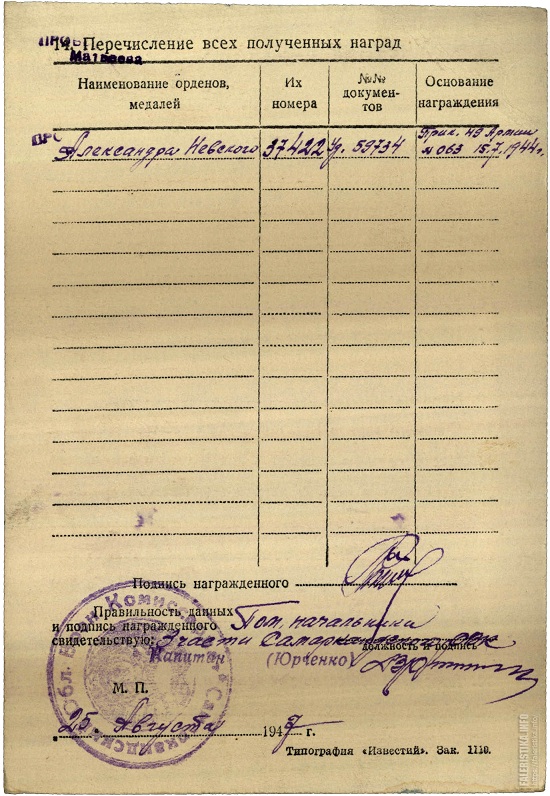 14. Перечисление всех полученных наград
Матвеева
Наименование орденов, медалей
Их номера
№№ документов
Основание награждения
Александра Невского 37422 Уд. 59734 Прик. 49 Армии
№ 063 15.7.1944г.
Подпись награжденного
Правильность данных
и подпись награжденного
свидетельствую: Пом. начальника
3 части Самаркандского ОВК
должность и подпись
Капитан (Юрченко)
М. П.
25. Августа 1947 г.
Типография «Известий». Зак. 1110.
FALERISTIKA.INFO